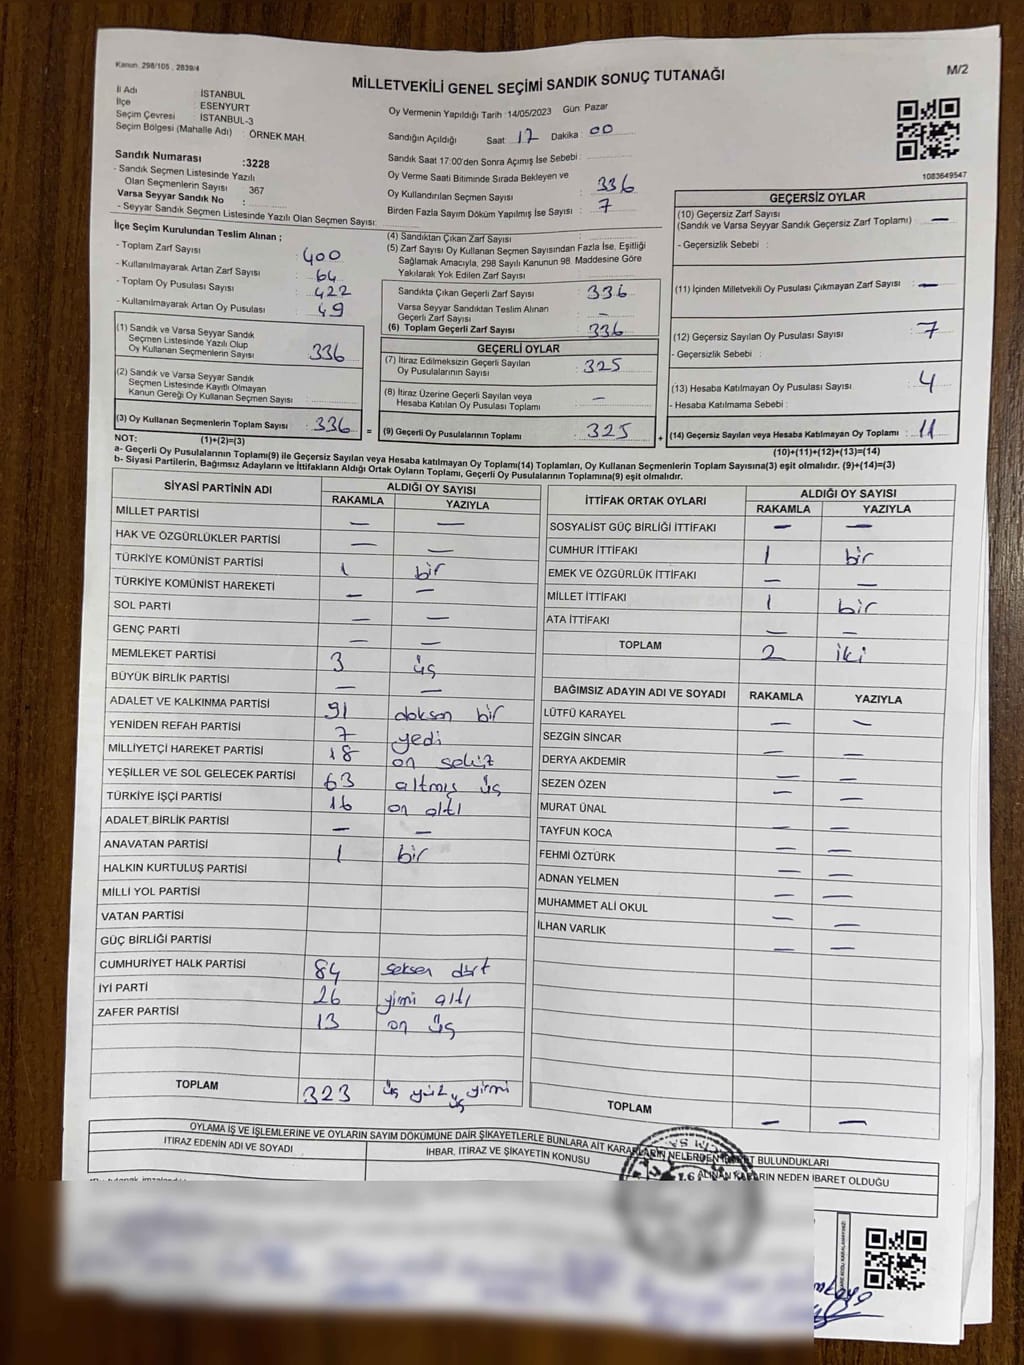 Kanun 298/105, 2839/4
MİLLETVEKİLİ GENEL SEÇİMİ SANDIK SONUÇ TUTANAĞI
M/2
İl Adı : İSTANBUL
İlçe : ESENYURT
Seçim Çevresi : İSTANBUL-3
Seçim Bölgesi (Mahalle Adı) : ÖRNEK MAH.
Sandık Numarası :3228
- Sandık Seçmen Listesinde Yazılı
Olan Seçmenlerin Sayısı : 367
Varsa Seyyar Sandık No :
- Seyyar Sandık Seçmen Listesinde Yazılı Olan Seçmen Sayısı:
Oy Vermenin Yapıldığı Tarih : 14/05/2023 Gün: Pazar
Sandığın Açıldığı Saat 17 Dakika : 00
Sandık Saat 17:00'den Sonra Açımış İse Sebebi :
Oy Verme Saati Bitiminde Sırada Bekleyen ve
Oy Kullandırılan Seçmen Sayısı : 336
Birden Fazla Sayım Döküm Yapılmış İse Sayısı : 7
1083649547
İlçe Seçim Kurulundan Teslim Alınan ;
- Toplam Zarf Sayısı : 400
- Kullanılmayarak Artan Zarf Sayısı : 64
- Toplam Oy Pusulası Sayısı : 422
- Kullanılmayarak Artan Oy Pusulası : 49
(1) Sandık ve Varsa Seyyar Sandık
Seçmen Listesinde Yazılı Olup
Oy Kullanan Seçmenlerin Sayısı : 336
(2) Sandık ve Varsa Seyyar Sandık
Seçmen Listesinde Kayıtlı Olmayan
Kanun Gereği Oy Kullanan Seçmen Sayısı :
(3) Oy Kullanan Seçmenlerin Toplam Sayısı : 336
(4) Sandıktan Çıkan Zarf Sayısı :
(5) Zarf Sayısı Oy Kullanan Seçmen Sayısından Fazla İse, Eşitliği
Sağlamak Amacıyla, 298 Sayılı Kanunun 98. Maddesine Göre
Yakılarak Yok Edilen Zarf Sayısı :
Sandıkta Çıkan Geçerli Zarf Sayısı : 336
Varsa Seyyar Sandıktan Teslim Alınan
Geçerli Zarf Sayısı : —
(6) Toplam Geçerli Zarf Sayısı : 336
GEÇERLİ OYLAR
(7) İtiraz Edilmeksizin Geçerli Sayılan
Oy Pusulalarının Sayısı : 325
(8) İtiraz Üzerine Geçerli Sayılan veya
Hesaba Katılan Oy Pusulası Toplamı : —
= (9) Geçerli Oy Pusulalarının Toplamı : 325
GEÇERSİZ OYLAR
(10) Geçersiz Zarf Sayısı
(Sandık ve Varsa Seyyar Sandık Geçersiz Zarf Toplamı) : —
- Geçersizlik Sebebi :
(11) İçinden Milletvekili Oy Pusulası Çıkmayan Zarf Sayısı : —
(12) Geçersiz Sayılan Oy Pusulası Sayısı : 7
- Geçersizlik Sebebi :
(13) Hesaba Katılmayan Oy Pusulası Sayısı : 4
- Hesaba Katılmama Sebebi :
+ (14) Geçersiz Sayılan veya Hesaba Katılmayan Oy Toplamı : 11
NOT: (1)+(2)=(3)
(10)+(11)+(12)+(13)=(14)
a- Geçerli Oy Pusulasının Toplamı(9) ile Geçersiz Sayılan veya Hesaba katılmayan Oy Toplamı(14) Toplamları, Oy Kullanan Seçmenlerin Toplam Sayısına(3) eşit olmalıdır. (9)+(14)=(3)
b- Siyasi Partilerin, Bağımsız Adayların ve İttifakların Aldığı Ortak Oyların Toplamı, Geçerli Oy Pusulasının Toplamına(9) eşit olmalıdır.
SİYASİ PARTİNİN ADI ALDIĞI OY SAYISI
RAKAMLA YAZIYLA
MİLLET PARTİSİ — —
HAK VE ÖZGÜRLÜKLER PARTİSİ — —
TÜRKİYE KOMÜNİST PARTİSİ 1 bir
TÜRKİYE KOMÜNİST HAREKETİ — —
SOL PARTİ — —
GENÇ PARTİ — —
MEMLEKET PARTİSİ 3 üç
BÜYÜK BİRLİK PARTİSİ — —
ADALET VE KALKINMA PARTİSİ 91 doksan bir
YENİDEN REFAH PARTİSİ 7 yedi
MİLLİYETÇİ HAREKET PARTİSİ 18 on sekiz
YEŞİLLER VE SOL GELECEK PARTİSİ 63 altmış üç
TÜRKİYE İŞÇİ PARTİSİ 16 on altı
ADALET BİRLİK PARTİSİ — —
ANAVATAN PARTİSİ 1 bir
HALKIN KURTULUŞ PARTİSİ
MİLLİ YOL PARTİSİ
VATAN PARTİSİ
GÜÇ BİRLİĞİ PARTİSİ
CUMHURİYET HALK PARTİSİ 84 seksen dört
İYİ PARTİ 26 yimi altı
ZAFER PARTİSİ 13 on üç
TOPLAM 323 üç yüz yirmi üç
İTTİFAK ORTAK OYLARI ALDIĞI OY SAYISI
RAKAMLA YAZIYLA
SOSYALİST GÜÇ BİRLİĞİ İTTİFAKI — —
CUMHUR İTTİFAKI 1 bir
EMEK VE ÖZGÜRLÜK İTTİFAKI — —
MİLLET İTTİFAKI 1 bir
ATA İTTİFAKI — —
TOPLAM 2 iki
BAĞIMSIZ ADAYIN ADI VE SOYADI RAKAMLA YAZIYLA
LÜTFÜ KARAYEL — —
SEZGİN SİNCAR — —
DERYA AKDEMİR — —
SEZEN ÖZEN — —
MURAT ÜNAL — —
TAYFUN KOCA — —
FEHMİ ÖZTÜRK — —
ADNAN YELMEN — —
MUHAMMET ALİ OKUL — —
İLHAN VARLIK — —
TOPLAM — —
OYLAMA İŞ VE İŞLEMLERİNE VE OYLARIN SAYIM DÖKÜMÜNE DAİR ŞİKAYETLERLE BUNLARA AİT KARARLARIN NELERDEN İBARET BULUNDUKLARI
İTİRAZ EDENİN ADI VE SOYADI
İHBAR, İTİRAZ VE ŞİKAYETİN KONUSU
ALINAN KARARIN NEDEN İBARET OLDUĞU